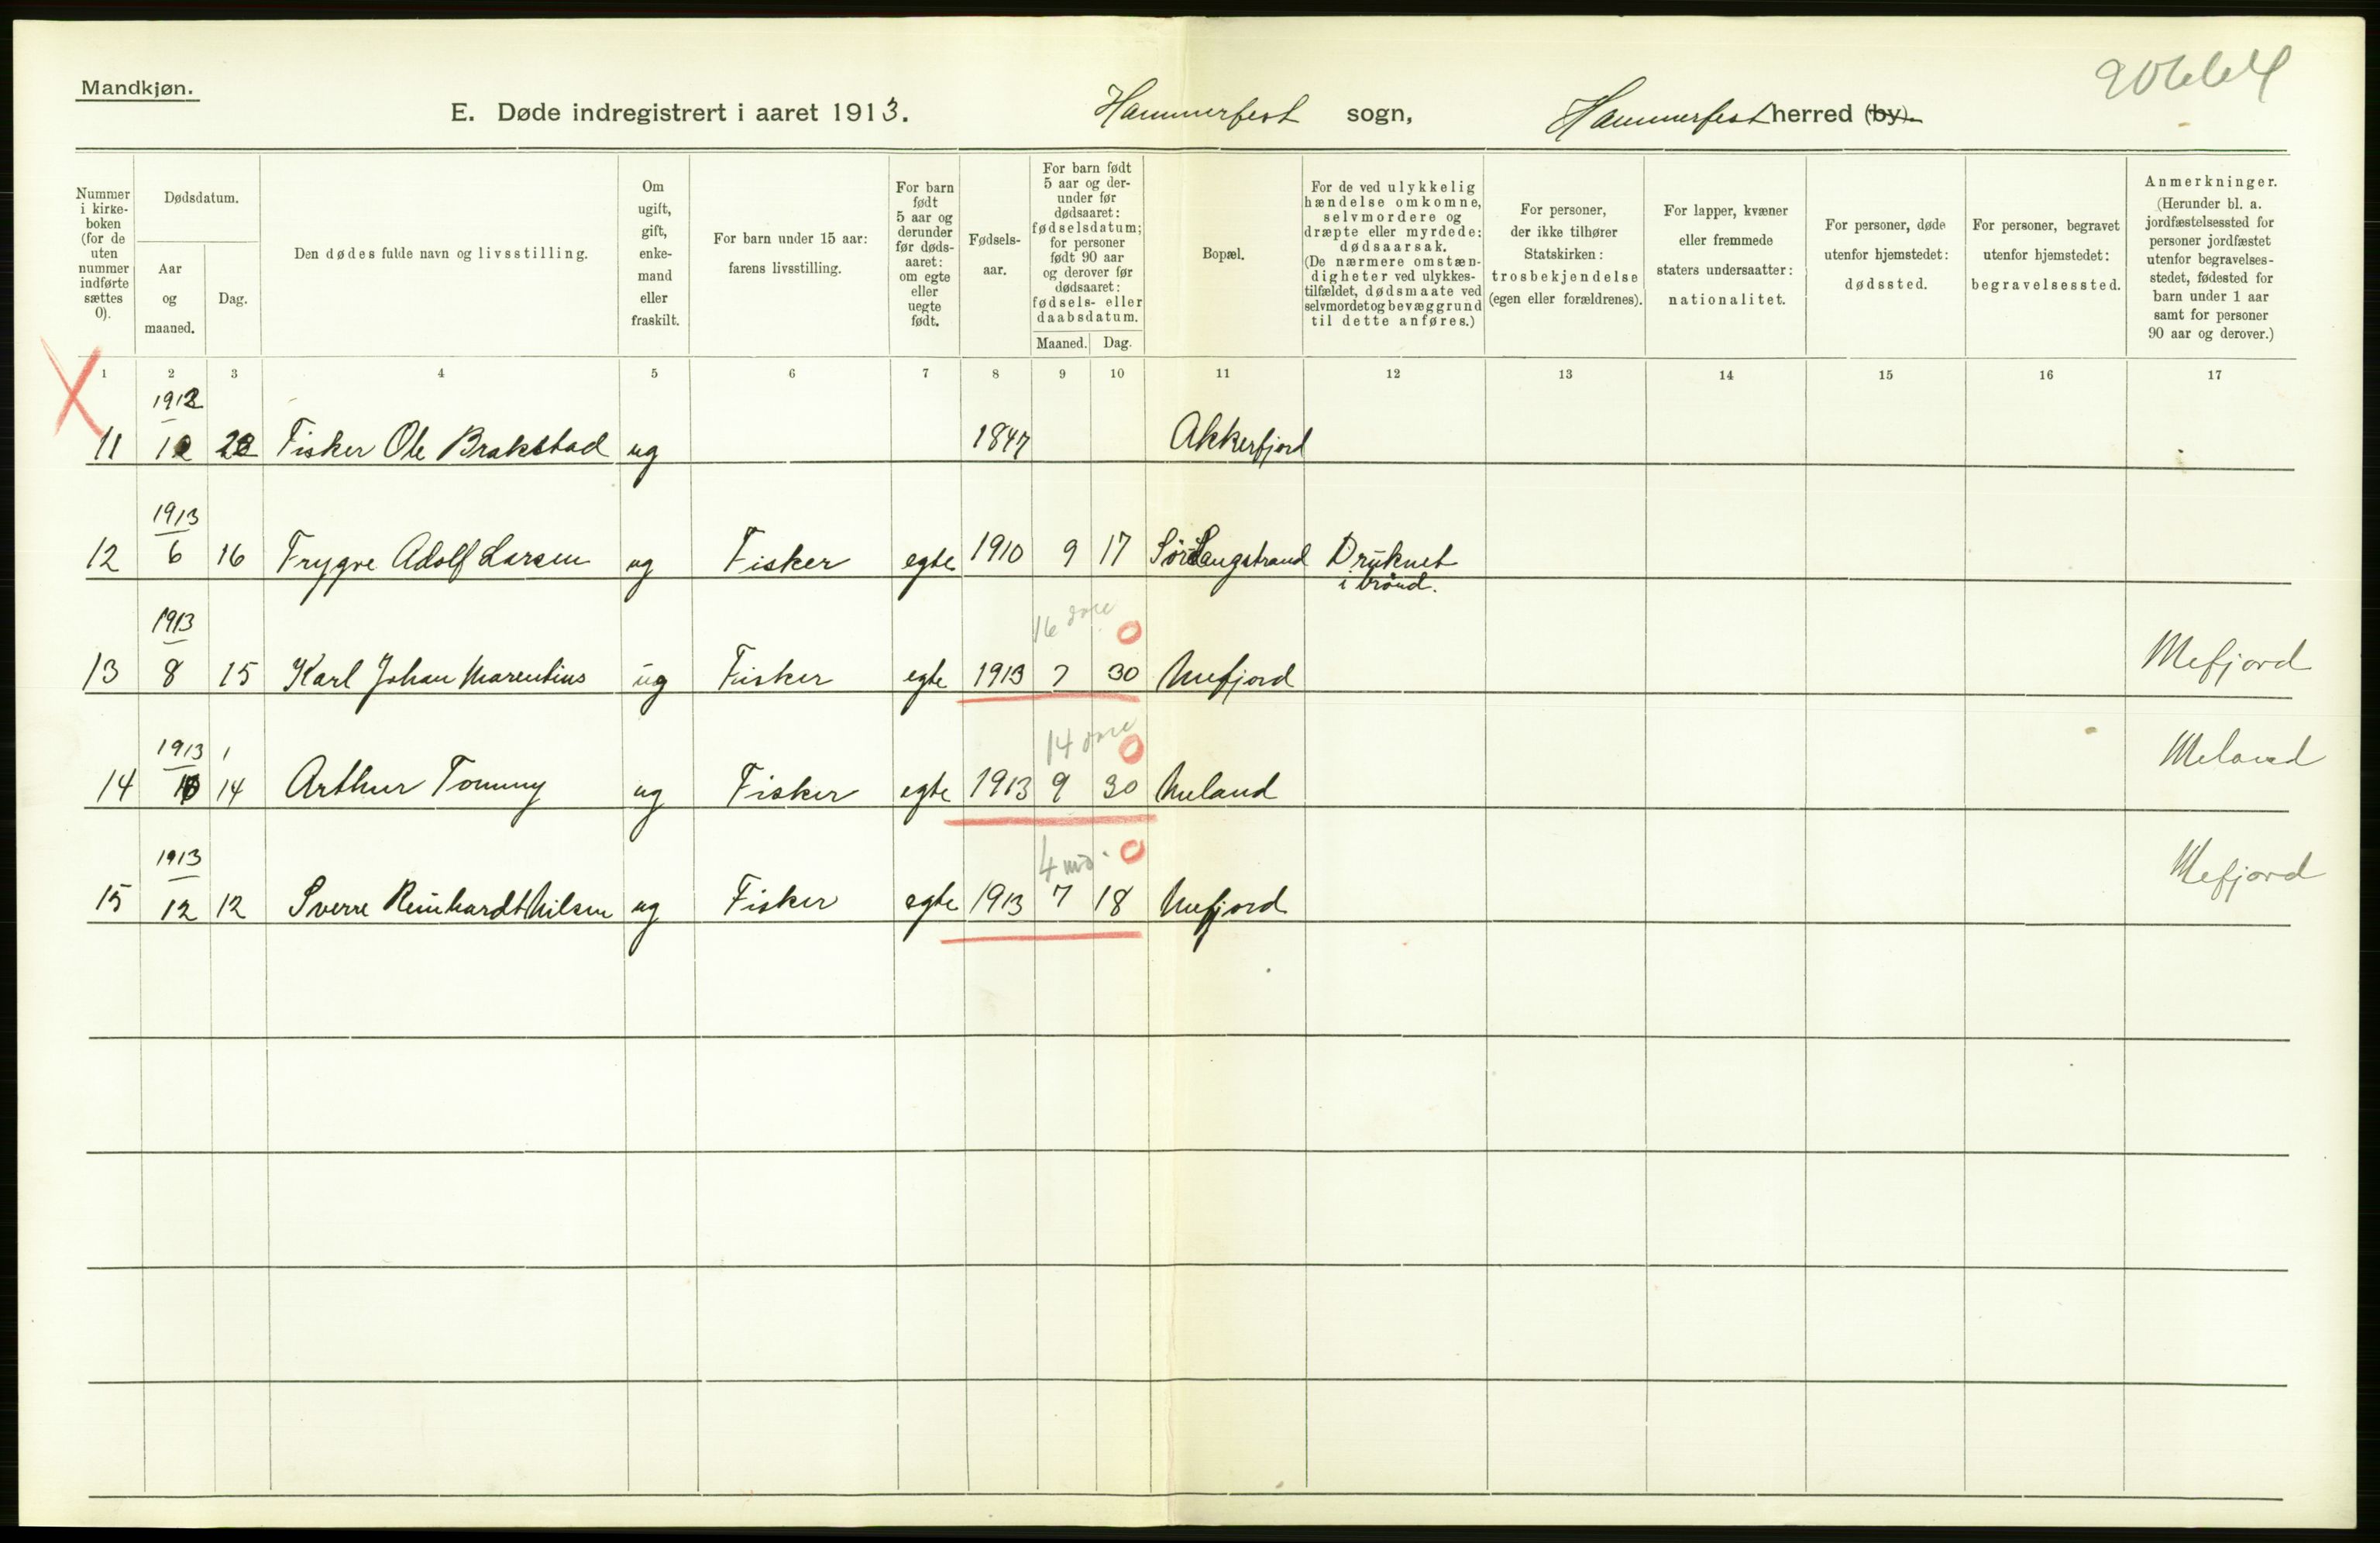 Mandkjøn.
20664
E. Døde indregistrert i aaret 1913. Hammerfest sogn, Hammerfest herred (by).
Nummer i kirke-boken (for de uten nummer indførte sættes 0).
Dødsdatum.
Aar og maaned.
Dag.
Den dødes fulde navn og livsstilling.
Om ugift, gift, enke-mand eller fraskilt.
For barn under 15 aar: farens livsstilling.
For barn født 5 aar og derunder før døds-aaret: om egte eller uegte født.
Fødsels-aar.
For barn født 5 aar og der-under før dødsaaret: fødselsdatum; for personer født 90 aar og derover før dødsaaret: fødsels- eller daabsdatum.
Maaned. Dag.
Bopæl.
For de ved ulykkelig hændelse omkomne, selvmordere og dræpte eller myrdede: dødsaarsak. (De nærmere omstæn-digheter ved ulykkes-tilfældet, dødsmaate ved selvmordet og bevæggrund til dette anføres.)
For personer, der ikke tilhører Statskirken: trosbekjendelse (egen eller forældrenes).
For lapper, kvæner eller fremmede staters undersaatter: nationalitet.
For personer, døde utenfor hjemstedet: dødssted.
For personer, begravet utenfor hjemstedet: begravelsessted.
Anmerkninger. (Herunder bl. a. jordfæstelsessted for personer jordfæstet utenfor begravelses-stedet, fødested for barn under 1 aar samt for personer 90 aar og derover.)
1 2 3 4 5 6 7 8 9 10 11 12 13 14 15 16 17
1912
11 12 Fisker Ole Brakstad ug 1847 Akkerfjord
1913
12 6 16 Trygve Adolf Larsen ug Fisker egte 1910 9 17 Sørö Langstrand Drüknet
i brönd.
1913 16 dage 0
13 8 15 Karl Johan Marentius ug Fisker egte 1913 7 30 Mefjord Mefjord
1913 14 dage 0
14 10 14 Arthur Tommy ug Fisker egte 1913 9 30 Meland Meland
1913 4 md. 0
15 12 12 Sverre Reinhardt Nilsen ug Fisker egte 1913 7 18 Mefjord Mefjord